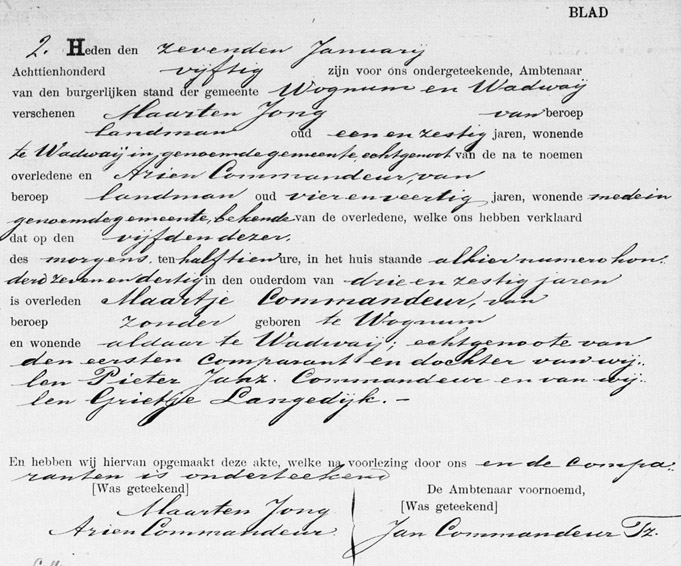 BLAD
2. Heden den zevenden Januarij
Achttienhonderd vijftig zijn voor ons ondergeteekende, Ambtenaar
van den burgerlijken stand der gemeente Wognum en Wadwaij
verschenen Maarten Jong van beroep
landman oud een en zestig jaren, wonende
te Wadwaij in genoemde gemeente, echtgenoot van de na te noemen
overledene en Arien Commandeur, van
beroep landman oud vier en veertig jaren, wonende mede in
genoemde gemeente, bekende van de overledene, welke ons hebben verklaard
dat op den vijfden dezer,
des morgens, ten half tien ure, in het huis staande alhier numero hon-
derd zeven en dertig in den ouderdom van drie en zestig jaren
is overleden Maartje Commandeur, van
beroep zonder geboren te Wognum
en wonende aldaar te Wadwaij; echtgenoote van
den eersten comparant en dochter van wij-
len Pieter Janz. Commandeur en van wij-
len Grietje Langedijk. —
En hebben wij hiervan opgemaakt deze akte, welke na voorlezing door ons en de compa-
ranten is onderteekend
[Was geteekend]
Maarten Jong
Arien Commandeur
De Ambtenaar voornoemd,
[Was geteekend]
Jan Commandeur Tz.